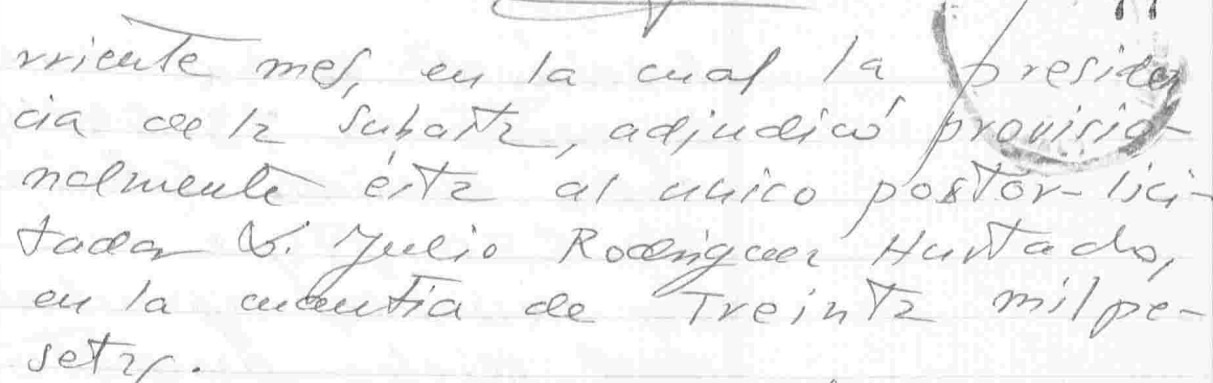 rriente mes, en la cual la presiden
cia de la subasta, adjudicó provisio-
nalmente ésta al unico postor-lici-
tador D. Julio Rodriguez Hurtado,
en la cuantia de Treinta mil pe-
setas.